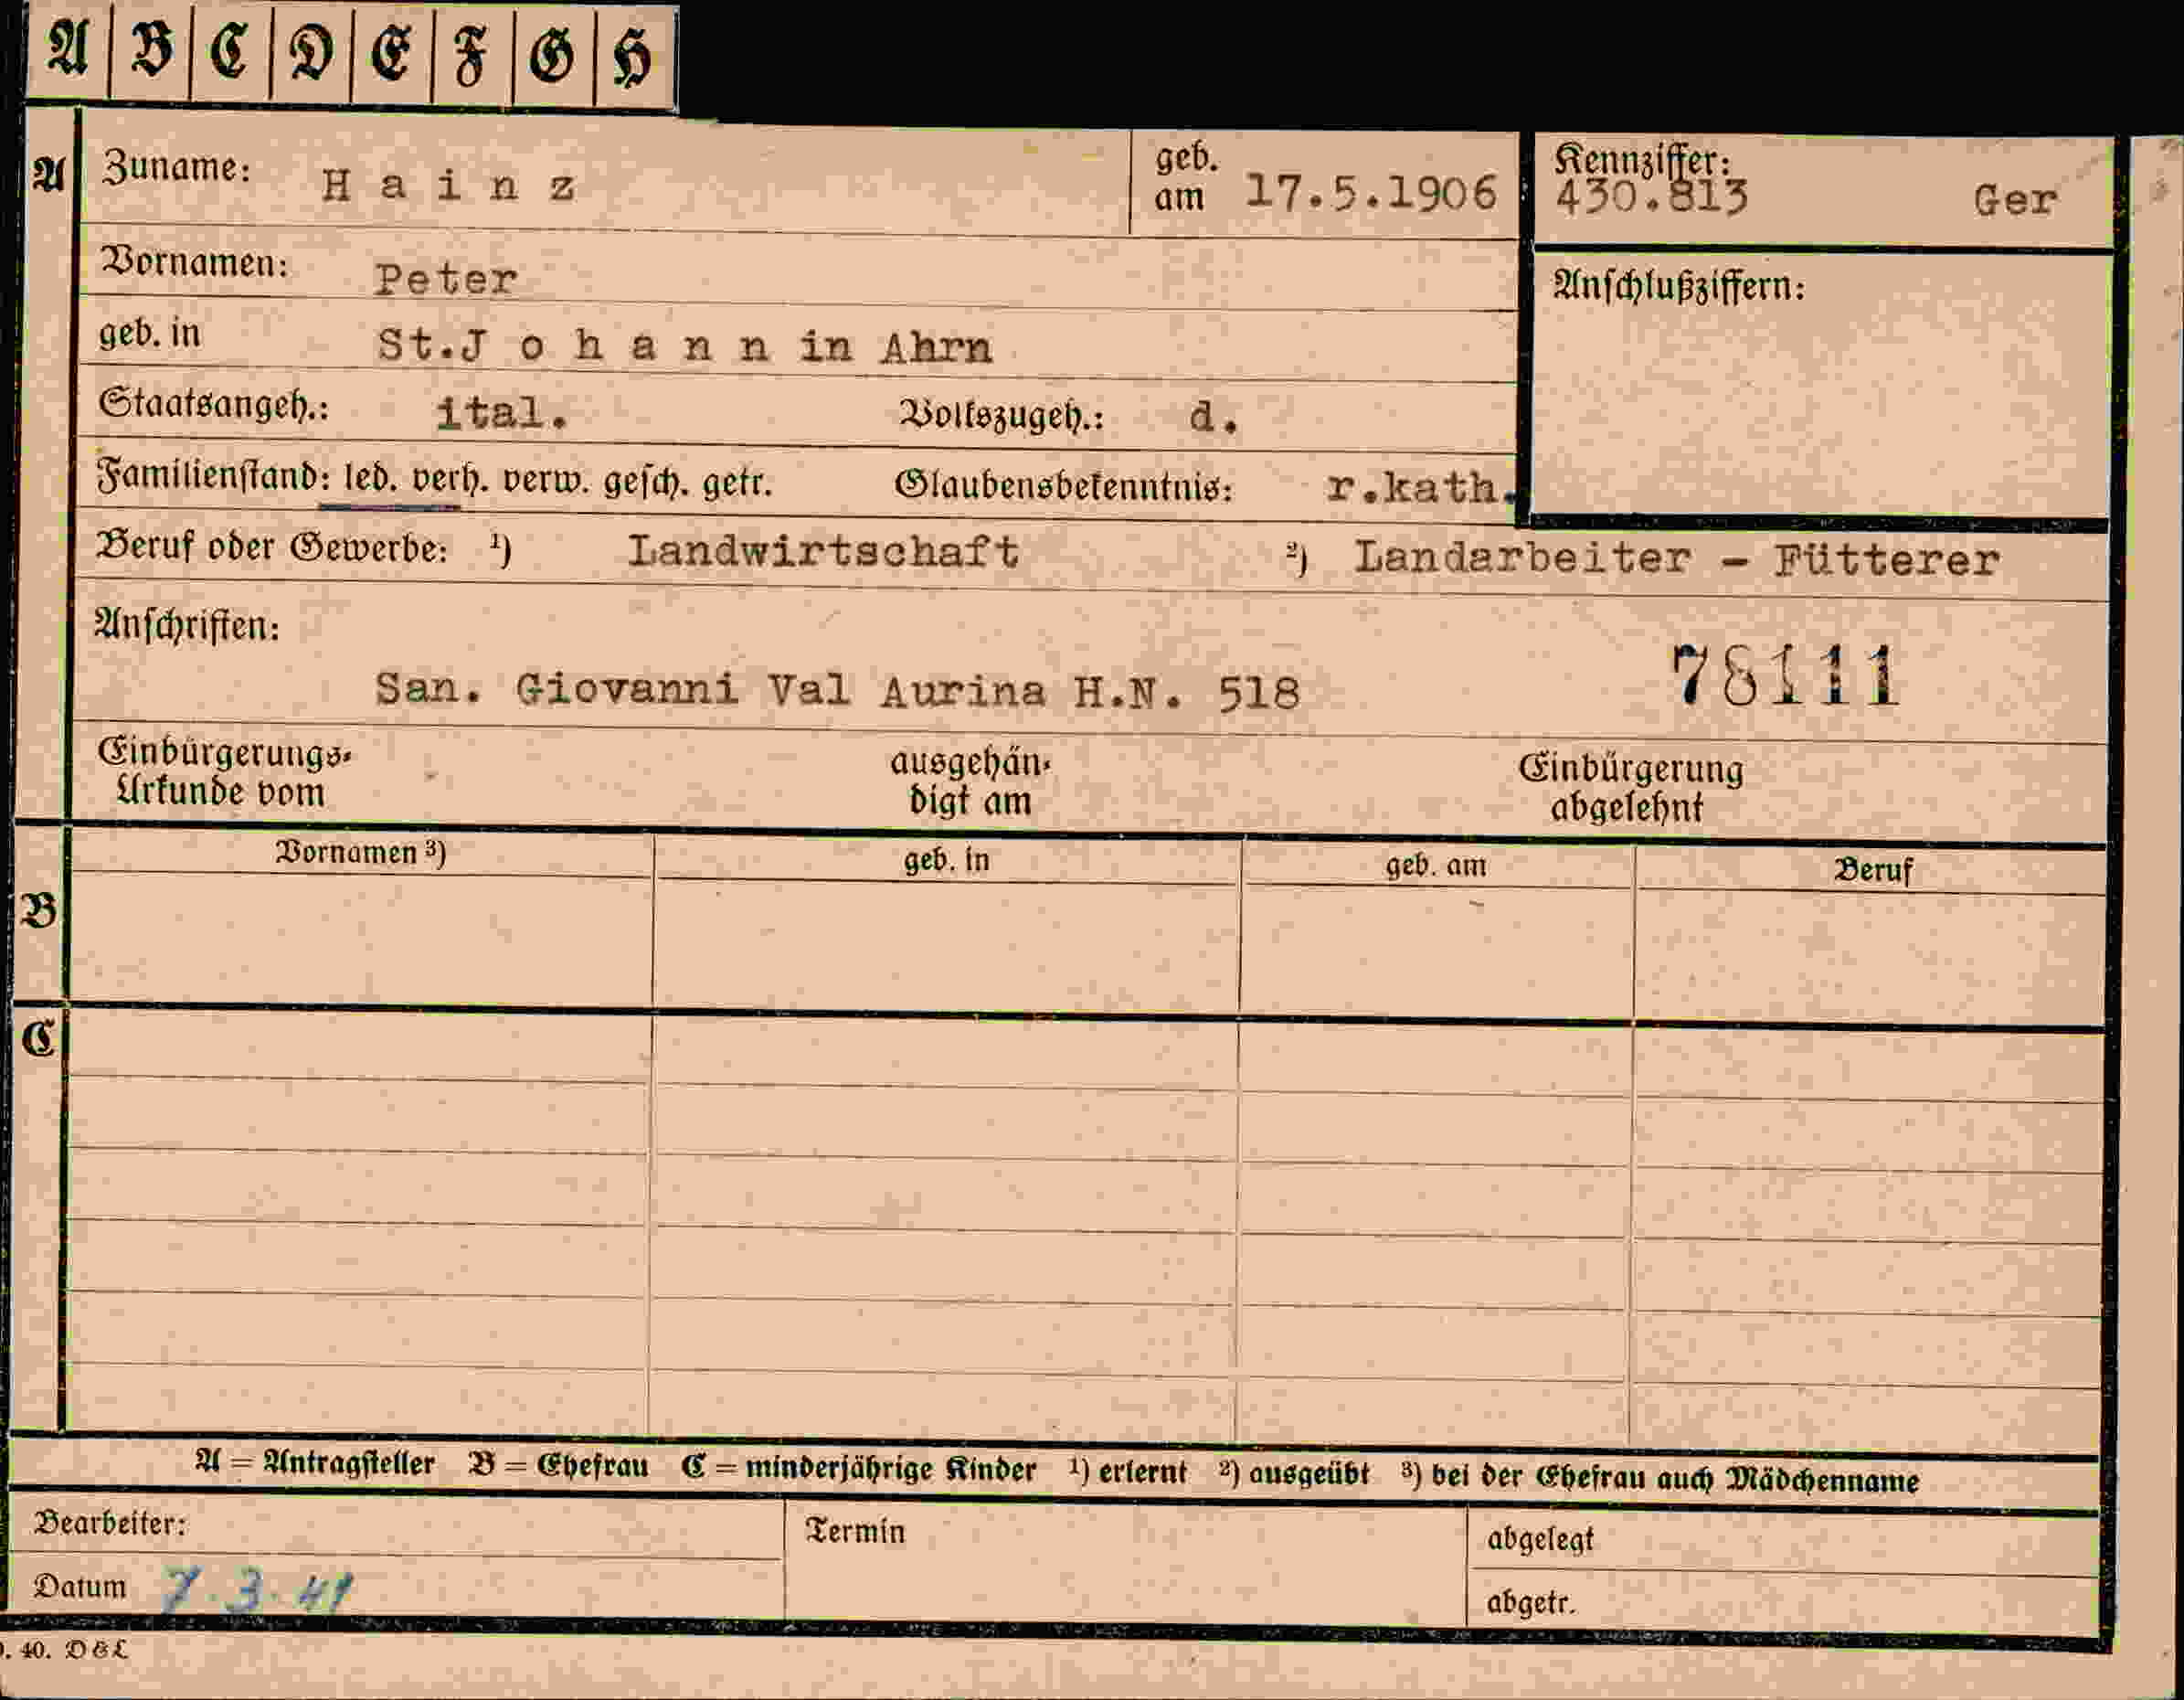 A B C D E F G H
A Zuname: H a i n z geb. am 17.5.1906 Kennziffer: 430.813 Ger
Vornamen: Peter Anschlußziffern:
geb. in St.J o h a n n in Ahrn
Staatsangeh.: ital. Volkszugeh.: d.
Familienstand: led. verh. verw. gesch. getr. Glaubensbekenntnis: r.kath.
Beruf oder Gewerbe: ¹) Landwirtschaft ²) Landarbeiter - Fütterer
Anschriften:
San. Giovanni Val Aurina H.N. 518 78111
Einbürgerungs- ausgehän- Einbürgerung
Urkunde vom digt am abgelehnt
Vornamen ³) geb. in geb. am Beruf
B
C
A = Antragsteller B = Ehefrau C = minderjährige Kinder ¹) erlernt ²) ausgeübt ³) bei der Ehefrau auch Mädchenname
Bearbeiter: Termin abgelegt
Datum 7.3.41 abgetr.
. 40. D&L